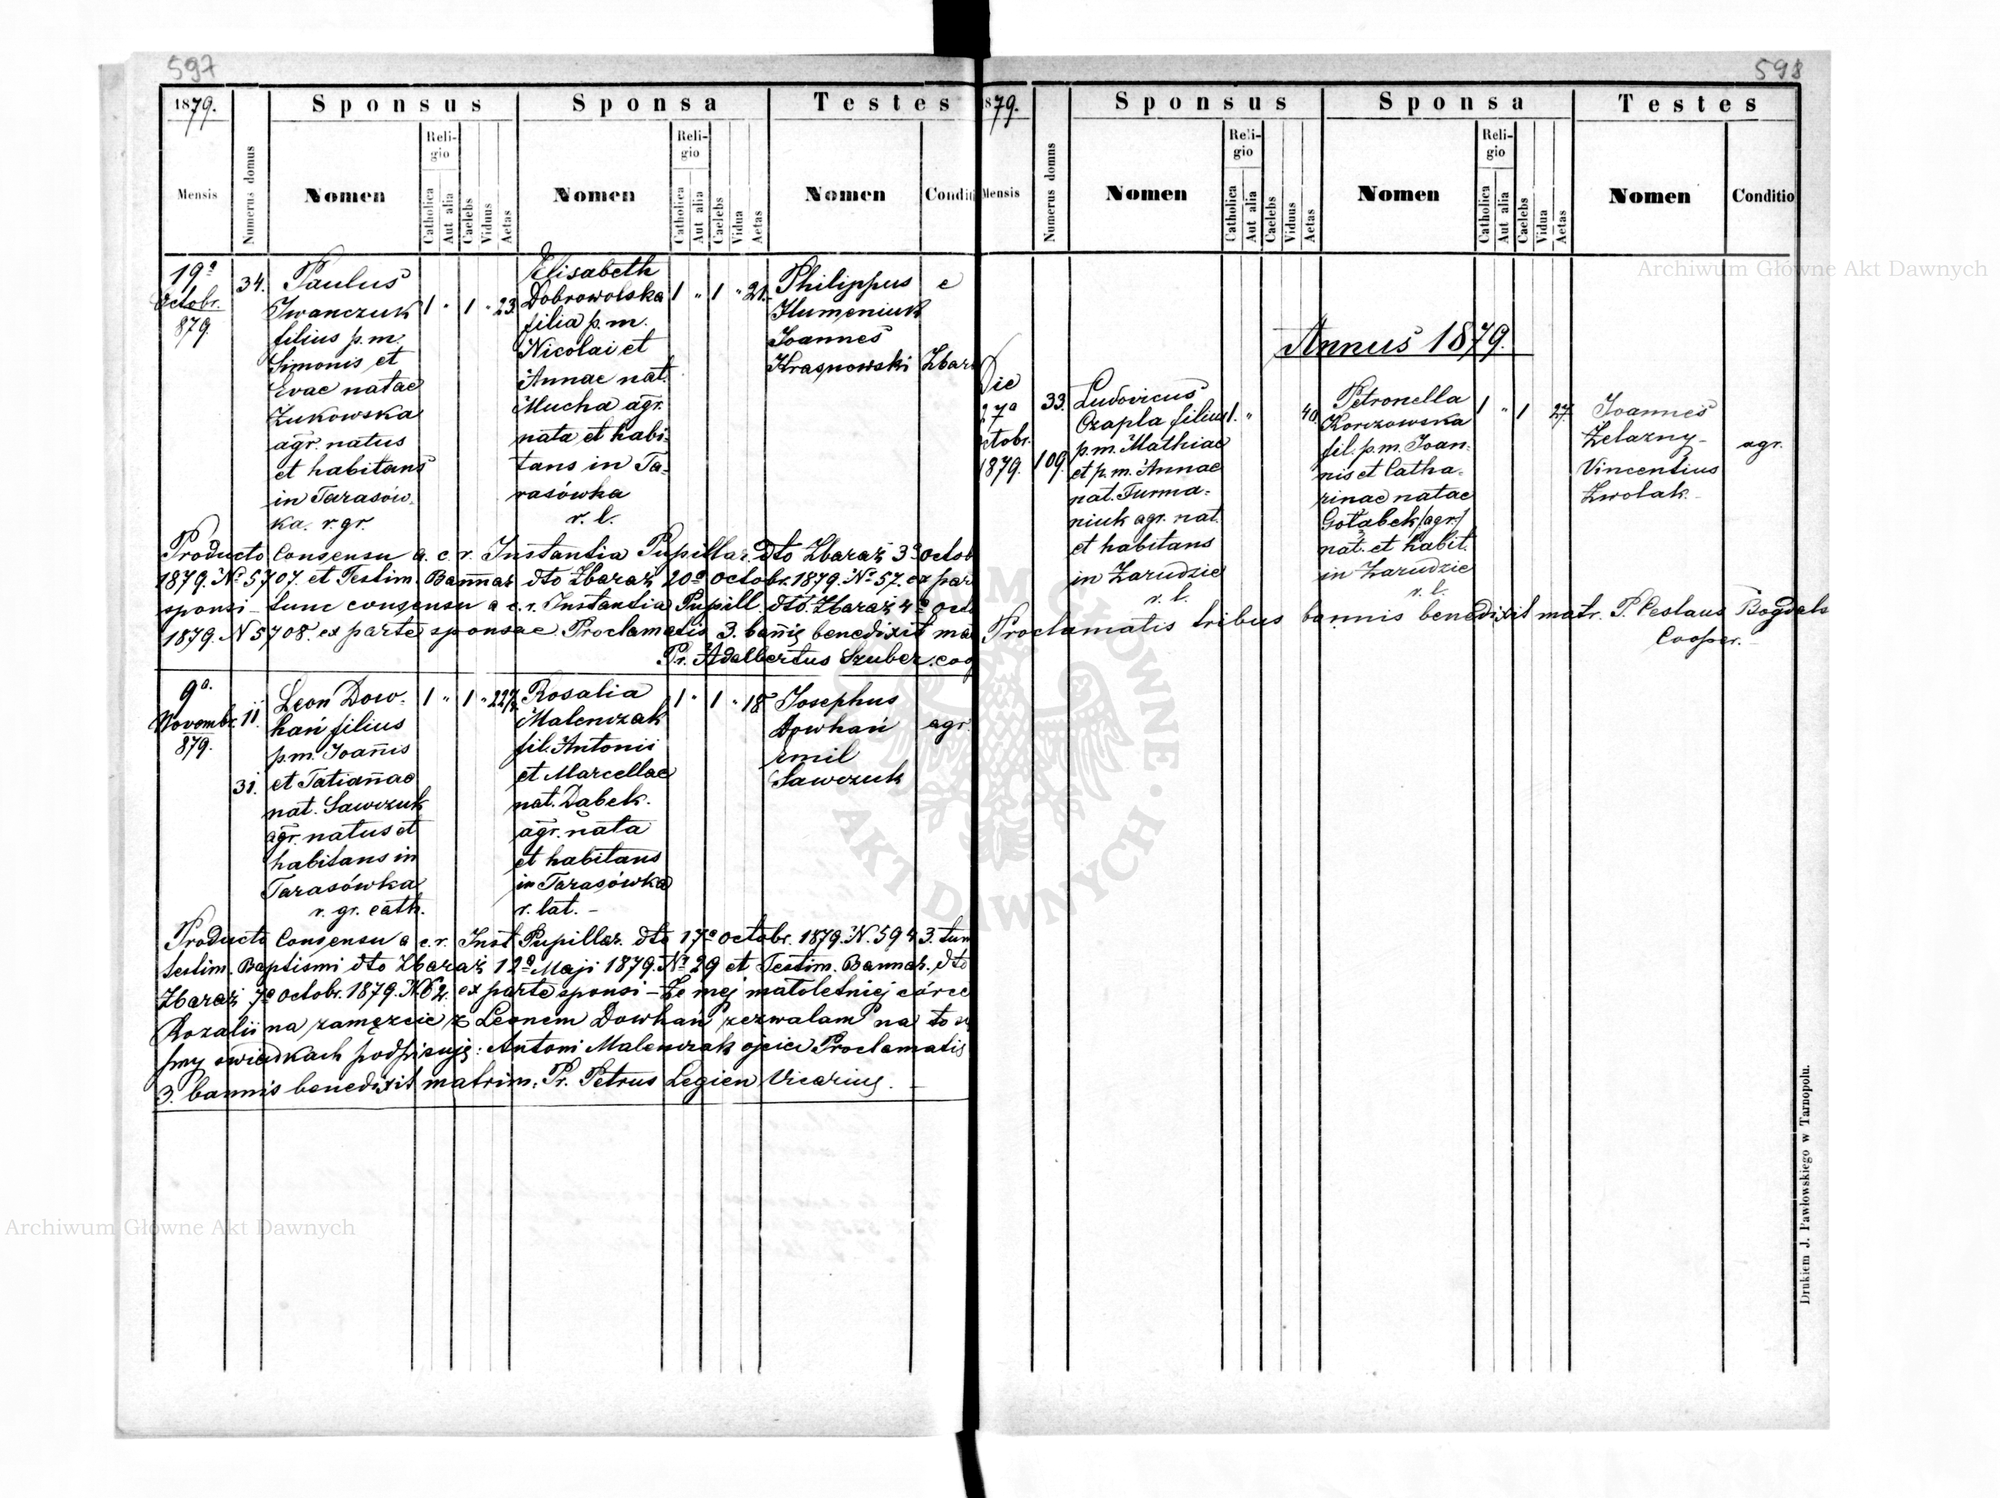 597
1879.
Sponsus
Sponsa
Testes
Mensis
Numerus domus
Nomen
Religio
Catholica
Aut alia
Caelebs
Viduus
Aetas
Nomen
Religio
Catholica
Aut alia
Caelebs
Vidua
Aetas
Nomen
Conditi
19a
Octobr.
879.
34.
Paulus
Iwanczuk
filius p.m.
Simonis et
Evae natae
Żukowska
agr. natus
et habitans
in Tarasów-
ka. r. gr.
1 " 1 " 23.
Elisabeth
Dobrowolska
filia p.m.
Nicolai et
Annae nat.
Mucha agr.
nata et habi-
tans in Ta-
rasówka
r. l.
1 " 1 " 21.
Philippus
Humeniuk
Joannes
Krasnowski
Zbar
Producto Consensu a. c. r. Instantia Pupillar. dto Zbaraż 3a octob
1879. No 5707. et Testim. Bannar. dto Zbaraż 20a octobr. 1879. No 57. ex par
sponsi - tunc consensu a c. r. Instantia Pupill. dto. Zbaraż 4a octo
1879. N 5708. ex parte sponsae. Proclamatis 3. bannis benedixit ma
Pr. Adalbertus Szuber. coo
9a.
Novembr.
879.
11.
31.
Leon Dow-
hań filius
p.m. Joannis
et Tatiannae
nat. Sawczuk
agr. natus et
habitans in
Tarasówka
r. gr. cath.
1 " 1 " 22 1/2
Rosalia
Malenczak
fil. Antonii
et Marcellae
nat. Dąbek.
agr. nata
et habitans
in Tarasówka
r. lat. -
1 " 1 " 18
Josephus
Dowhań
Emil
Sawczuk
agr.
Producto Consensu a c. r. Inst Pupillar. dto 17a octobr. 1879. N. 5943. tum
testim. Baptismi dto Zbaraż 12a Maji 1879. No 29 et Testim. Bannar. dto
Zbaraż 7a octobr. 1879. N. 62. ex parte sponsi - Że mej małoletniej córce
Rozalii na zamęzcie z Leonem Dowhań zezwalam na to
przy świadkach podpisuję: Antoni Malenczak ojciec Proclamatis
3. bannis benedixit matrim. Pr. Petrus Legien Vicarius. -
598
879.
Sponsus
Sponsa
Testes
Mensis
Numerus domus
Nomen
Religio
Catholica
Aut alia
Caelebs
Viduus
Aetas
Nomen
Religio
Catholica
Aut alia
Caelebs
Vidua
Aetas
Nomen
Conditio
Annus 1879.
Die
27a
octobr.
1879.
33.
109.
Ludovicus
Czapla filius
p.m. Mathiae
et p.m. Annae
nat. Furma-
niuk agr. nat.
et habitans
in Zarudzie
r. l.
1. " 40
Petronella
Korczowska
fil. p.m. Joan-
nis et Catha-
rinae natae
Gołąbek /agr/
nat. et habit.
in Zarudzie
r. l.
1 " 1 27.
Joannes
Żelazny -
Vincentius
Zwolak -
agr.
Proclamatis tribus bannis benedixit matr. P. Ceslaus Bogdals
Cooper. -
Drukiem J. Pawłowskiego w Tarnopolu.
Archiwum Główne Akt Dawnych
Archiwum Główne Akt Dawnych